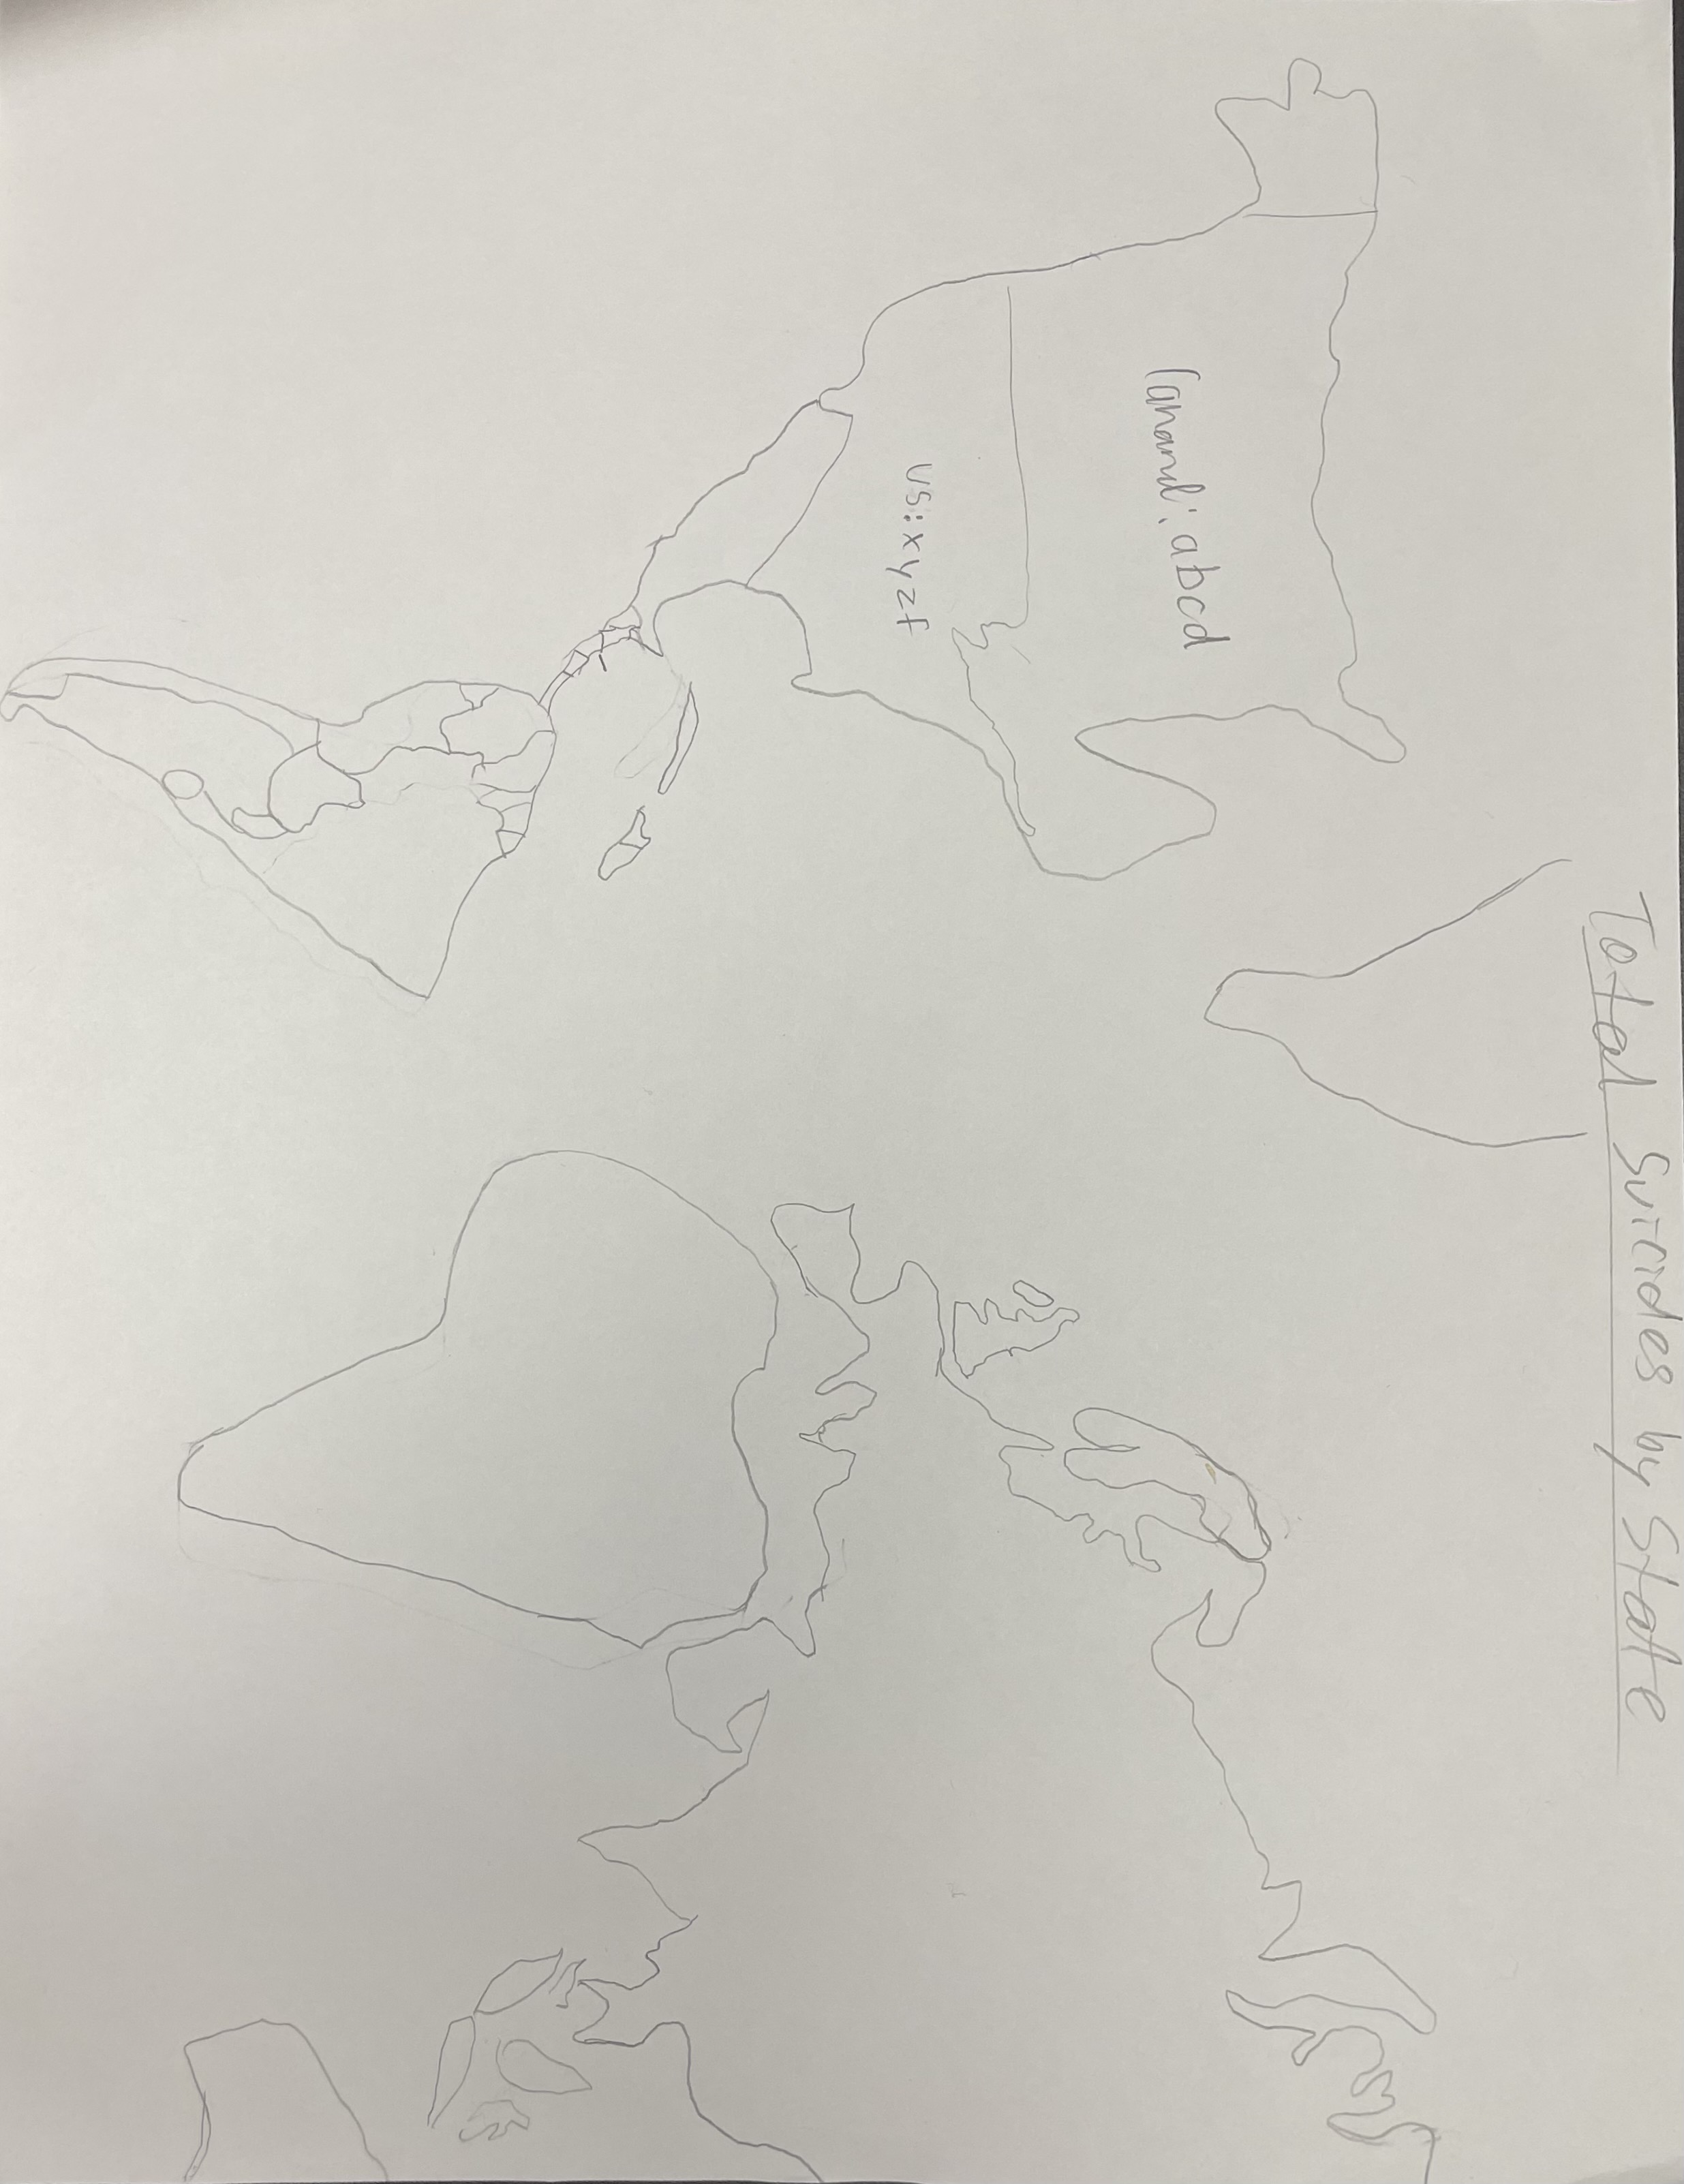 Total Suicides by State
: abcd
US: xyzf